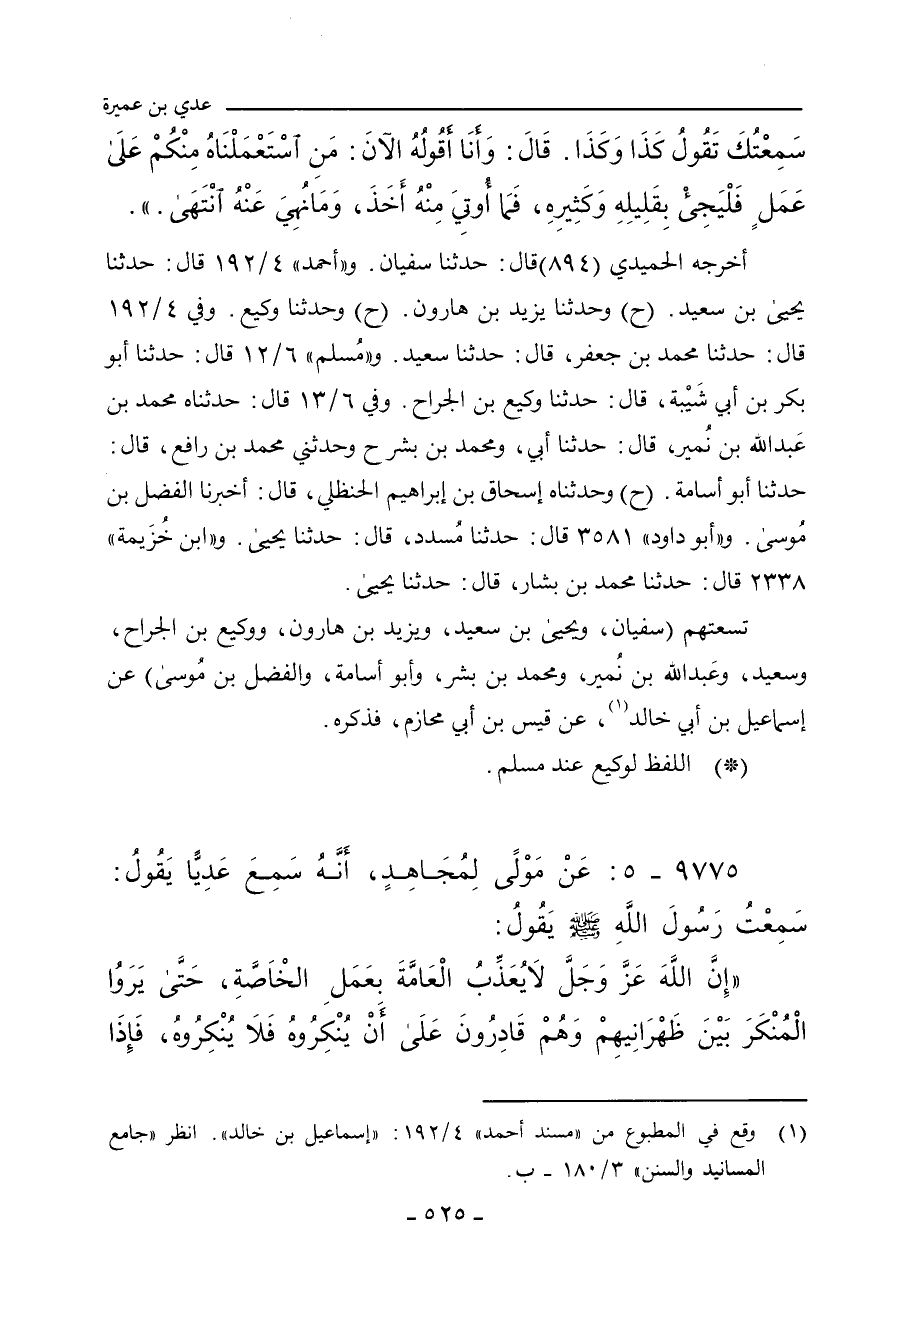 عدي بن عميرة
سَمِعْتُكَ تَقُولُ كَذَا وَكَذَا. قَالَ: وَأَنَا أَقُولُهُ الآنَ: مَنِ ٱسْتَعْمَلْنَاهُ مِنْكُمْ عَلَىٰ
عَمَلٍ فَلْيَجِئْ بِقَلِيلِهِ وَكَثِيرِهِ، فَمَا أُوتِيَ مِنْهُ أَخَذَ، وَمَانُهِيَ عَنْهُ ٱنْتَهَىٰ.».
أخرجه الحميدي (٨٩٤)قال: حدثنا سفيان. و«أحمد» ١٩٢/٤ قال: حدثنا
يحيىٰ بن سعيد. (ح) وحدثنا يزيد بن هارون. (ح) وحدثنا وكيع. وفي ١٩٢/٤
قال: حدثنا محمد بن جعفر، قال: حدثنا سعيد. و«مُسلم» ١٢/٦ قال: حدثنا أبو
بكر بن أبي شَيْبة، قال: حدثنا وكيع بن الجراح. وفي ١٣/٦ قال: حدثناه محمد بن
عَبدالله بن نُمير، قال: حدثنا أبي، ومحمد بن بشر ح وحدثني محمد بن رافع، قال:
حدثنا أبو أسامة. (ح) وحدثناه إسحاق بن إبراهيم الحنظلي، قال: أخبرنا الفضل بن
مُوسىٰ. و«أبو داود» ٣٥٨١ قال: حدثنا مُسدد، قال: حدثنا يحيىٰ. و«ابن خُزَيمة»
٢٣٣٨ قال: حدثنا محمد بن بشار، قال: حدثنا يحيىٰ.
تسعتهم (سفيان، ويحيىٰ بن سعيد، ويزيد بن هارون، ووكيع بن الجراح،
وسعيد، وعَبدالله بن نُمير، ومحمد بن بشر، وأبو أسامة، والفضل بن مُوسىٰ) عن
إسماعيل بن أبي خالد(١)، عن قيس بن أبي محازم، فذكره.
(*) اللفظ لوكيع عند مسلم.
٩٧٧٥ ـ ٥: عَنْ مَوْلًى لِمُجَاهِدٍ، أَنَّهُ سَمِعَ عَدِيًّا يَقُولُ:
سَمِعْتُ رَسُولَ اللَّهِ ﷺ يَقُولُ:
«إِنَّ اللَّهَ عَزَّ وَجَلَّ لَايُعَذِّبُ الْعَامَّةَ بِعَمَلِ الْخَاصَّةِ، حَتَّىٰ يَرَوُا
الْمُنْكَرَ بَيْنَ ظَهْرَانِيهِمْ وَهُمْ قَادِرُونَ عَلَىٰ أَنْ يُنْكِرُوهُ فَلَا يُنْكِرُوهُ، فَإِذَا
(١) وقع في المطبوع من «مسند أحمد» ١٩٢/٤: «إسماعيل بن خالد». انظر «جامع
المسانيد والسنن» ١٨٠/٣ ـ ب.
ـ ٥٢٥ ـ